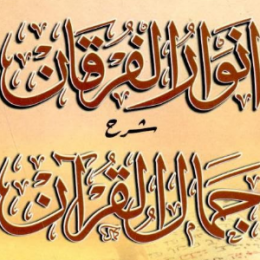 انوارُ الفُرقان
شرح
جمال القرآن